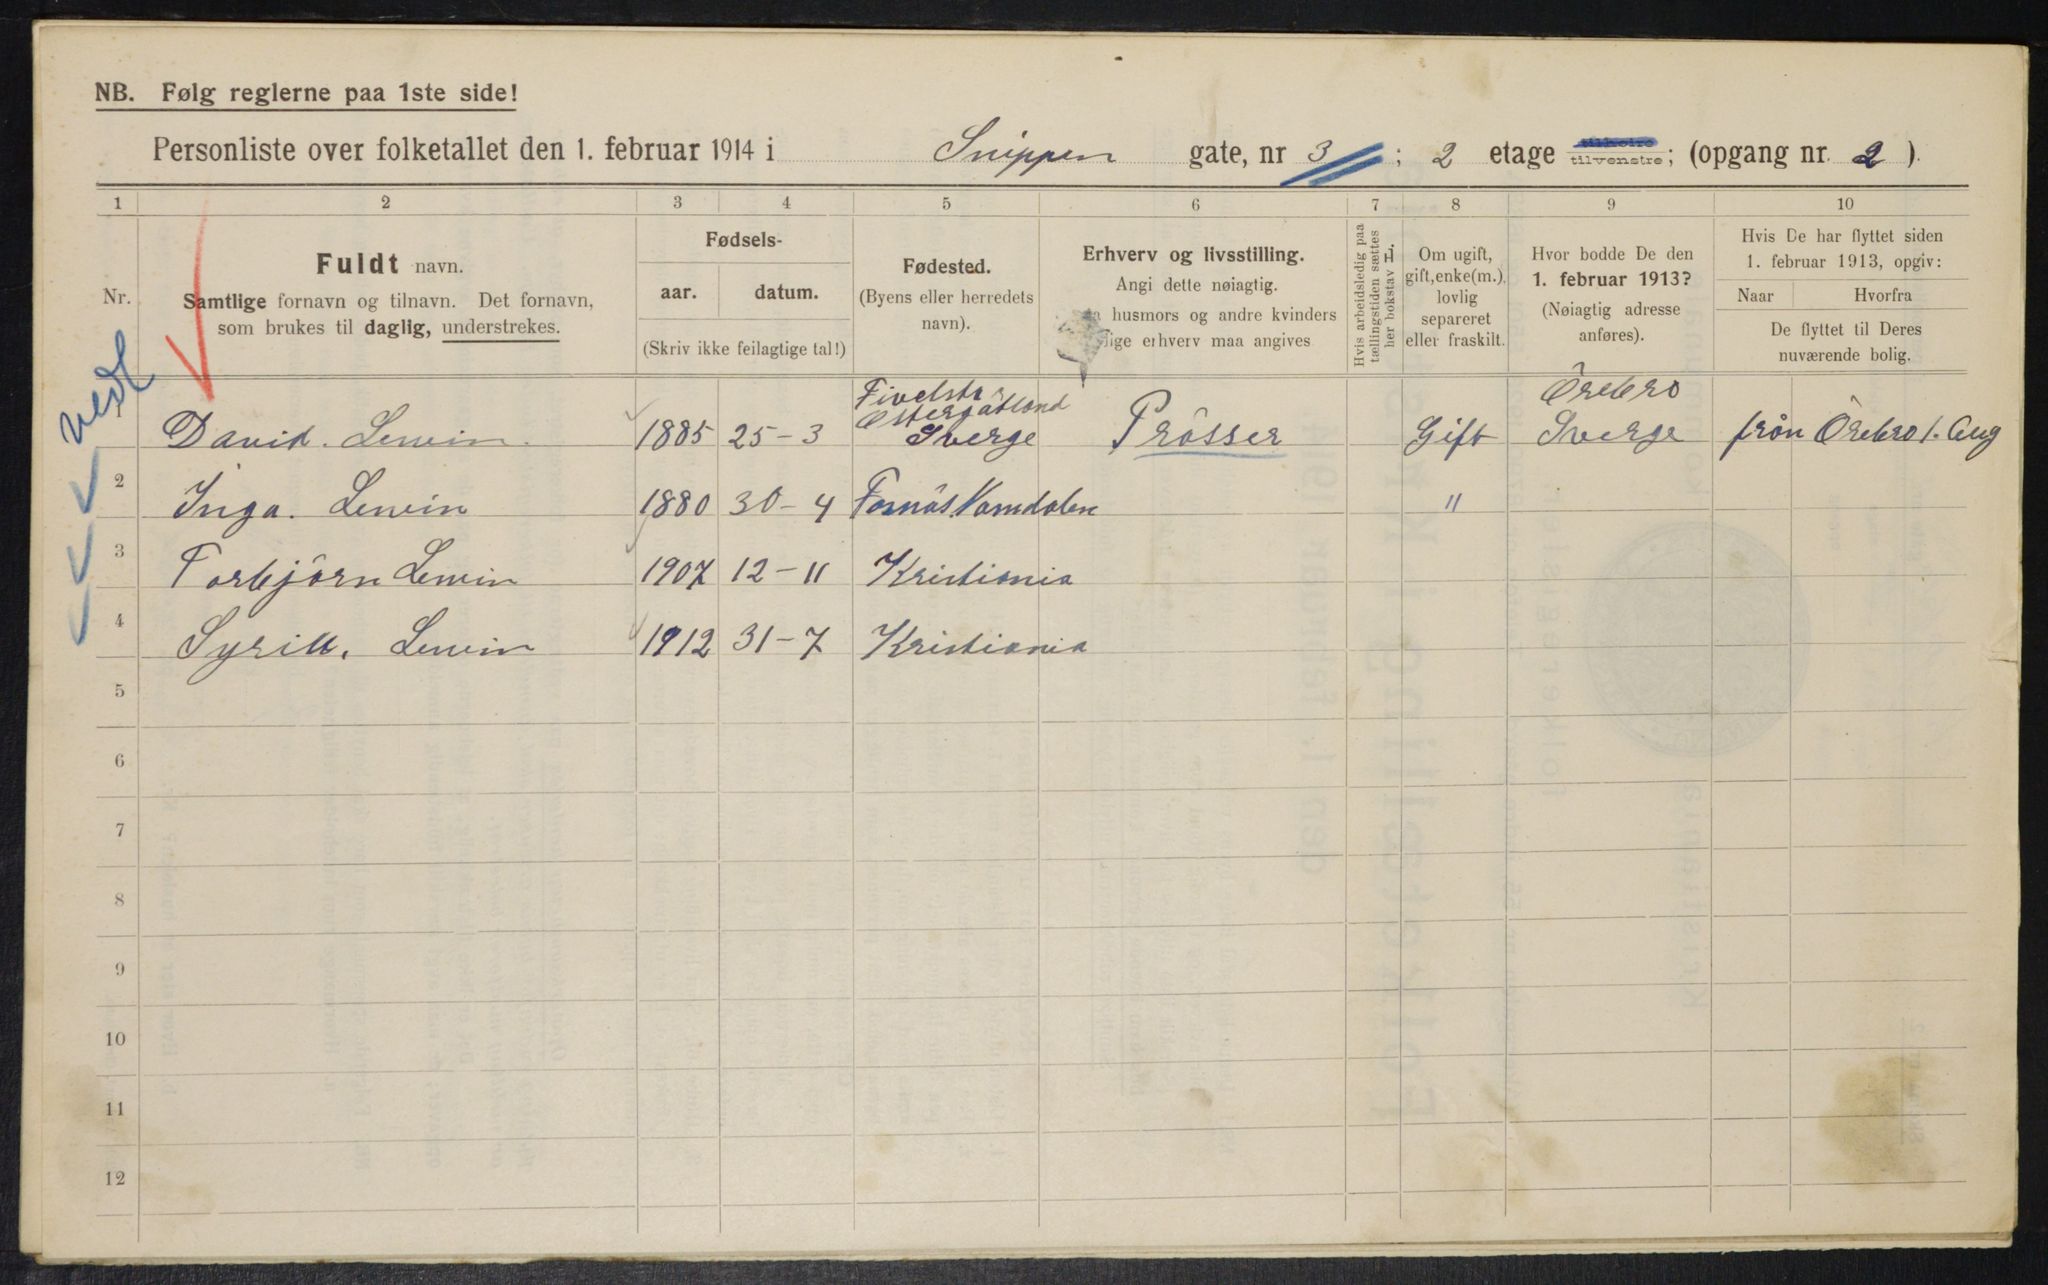 NB. Følg reglerne paa 1ste side!
Personliste over folketallet den 1. februar 1914 i Snippen gate, nr 3 ; 2 etage tilhoire tilvenstre; (opgang nr. 2 ).
1 2 3 4 5 6 7 8 9 10
Nr.
Fuldt navn.
Samtlige fornavn og tilnavn. Det fornavn,
som brukes til daglig, understrekes.
Fødsels-
aar. datum.
(Skriv ikke feilagtige tal!)
Fødested.
(Byens eller herredets
navn).
Erhverv og livsstilling.
Angi dette nøiagtig.
husmors og andre kvinders
erhverv maa angives
Hvis arbeidsledig paa
tællingstiden sættes
her bokstav L.
Om ugift,
gift, enke(m.),
lovlig
separeret
eller fraskilt.
Hvor bodde De den
1. februar 1913?
(Nøiagtig adresse
anføres).
Hvis De har flyttet siden
1. februar 1913, opgiv:
Naar Hvorfra
De flyttet til Deres
nuværende bolig.
David. Lewin. 1885 25-3 Fivelsta Østergøtland Sverge Prässer Gift Örebro Sverge från Örebro 1. Aug
2 Inga. Lewin 1880 30-4 Fosnäs Namdalen "
3 Torbjörn Lewin 1907 12-11 Kristiania
4 Syrill. Lewin 1912 31-7 Kristiania
5
6
7
8
9
10
11
12